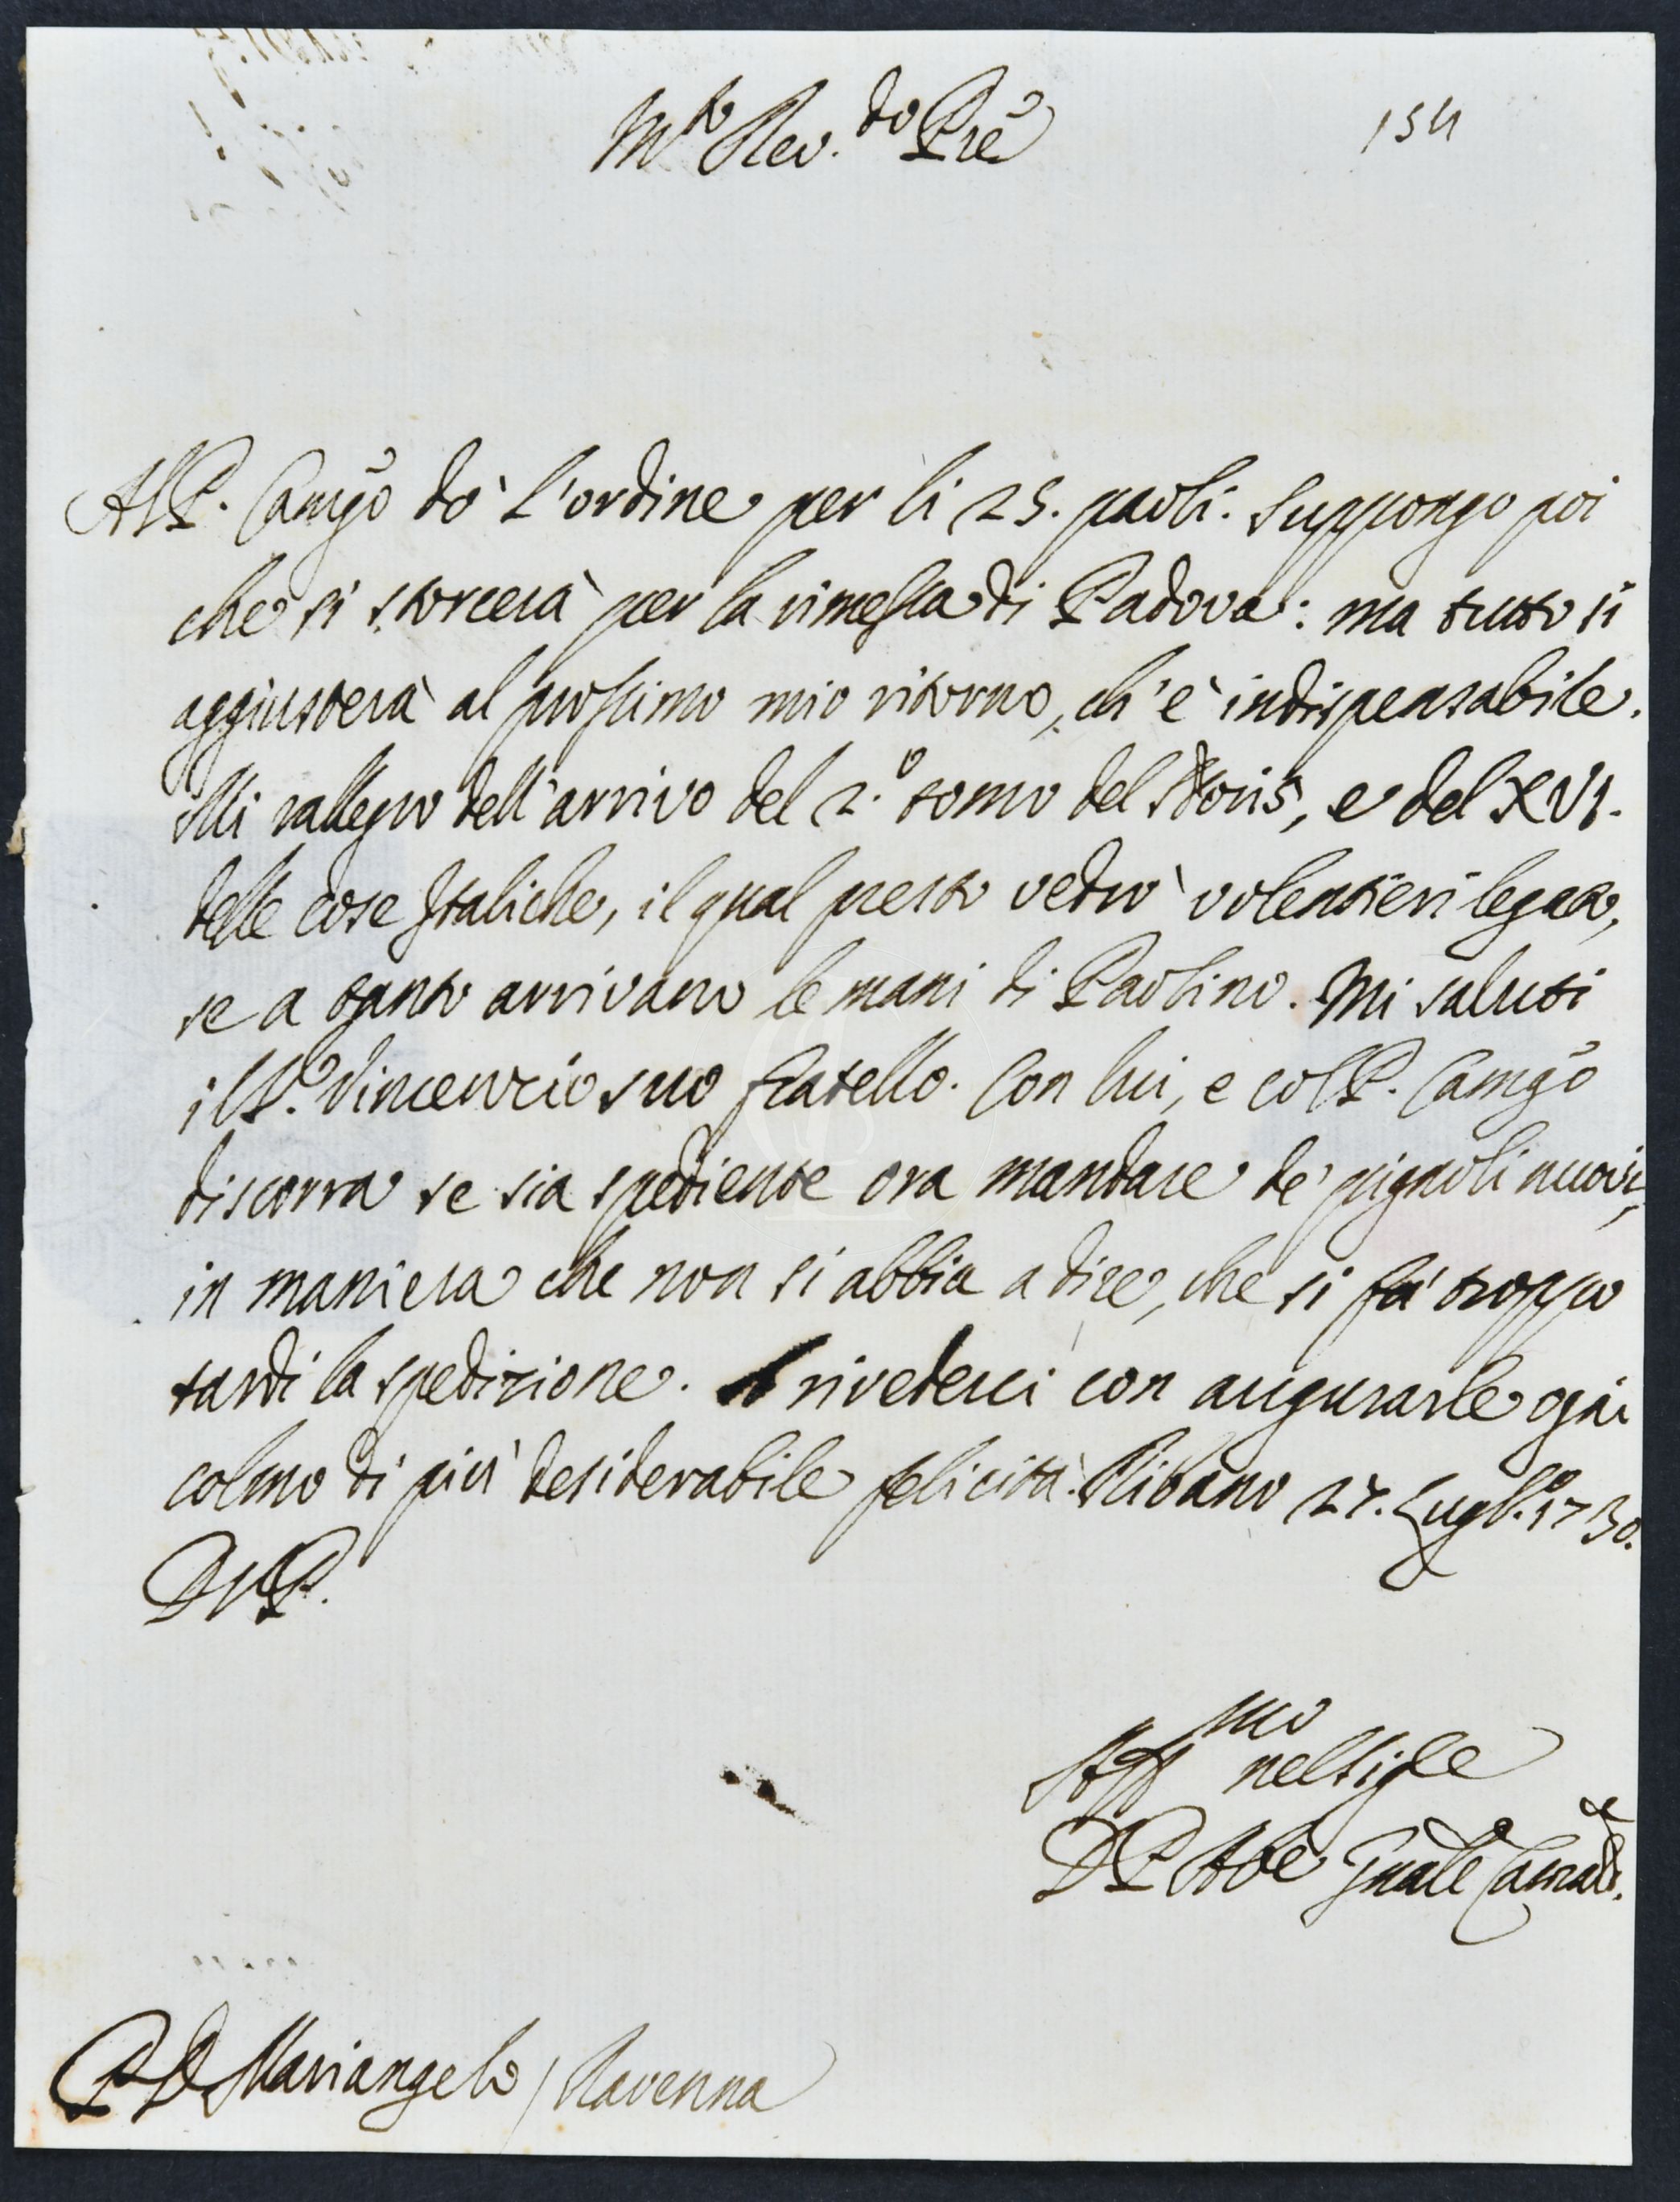 M.to Rev.do Prē
154
Al P. Camg̃o dò l'ordine per li 25. paoli. Suppongo poi
che si storcerà per la rimessa di Padova: ma tutto si
aggiusterà al prossimo mio ritorno, ch'è indispensabile.
Mi rallegro dell'arrivo del 2.o tomo del Noris, e del XVI.
delle cose Italiche, il qual presto vedrò volentieri legato,
se a tanto arrivano le mani di Paolino. Mi saluti
il S.r Vincenzio suo fratello. Con lui, e col P. Camg̃o
discorra se sia spediente ora mandare de' pignoli nuovi,
in maniera che non si abbia a dire, che si fà troppo
tardi la spedizione. A rivederci con augurarle ogni
colmo di più desiderabile felicità. 27. Lugl.o 1730.
DVP.
Aff.mo nel Sig.re
DP Abē Gn̄ale Camald.e
P D Mariangelo / Ravenna